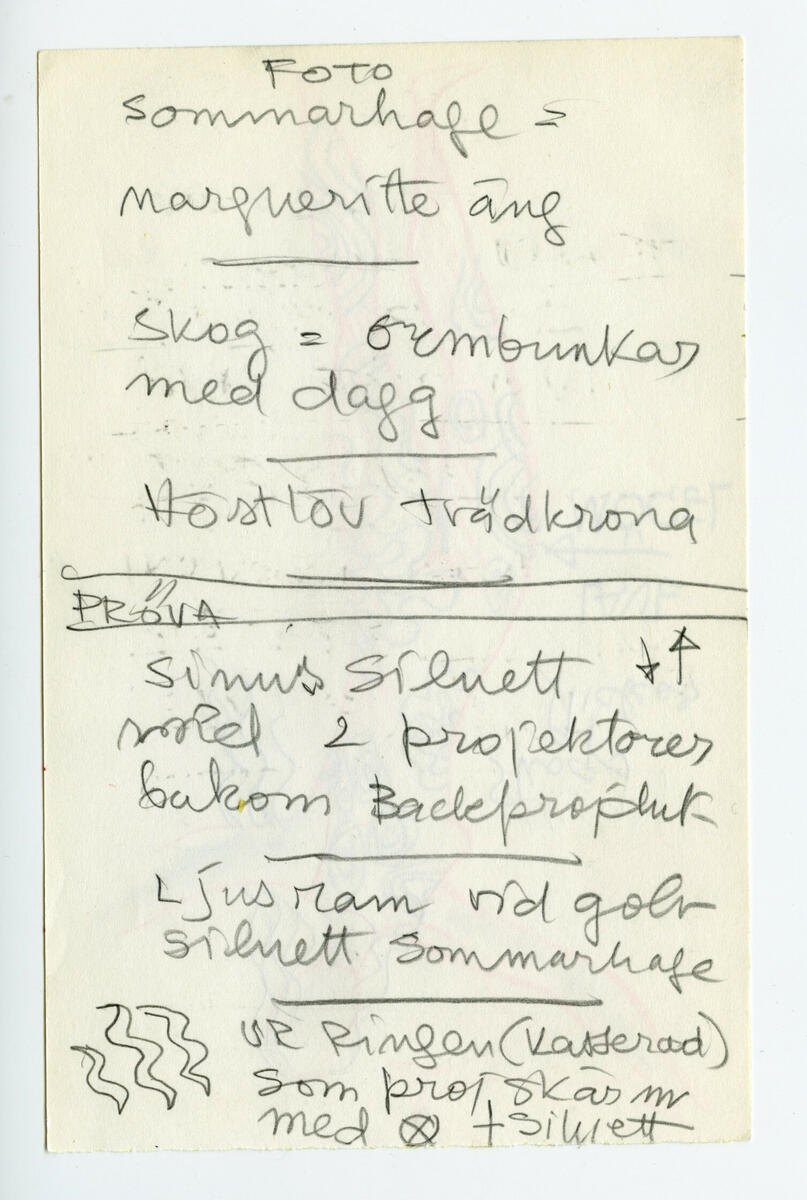 FOTO
Sommarhage =
margueritte äng
Skog = ormbunkar
med dagg
Höstlöv trädkrona
PRÖVA
Sinus Siluett ↓↑
med 2 projektorer
bakom Backproduk
Ljusram vid golv
Siluett Sommarhage
UR Ringen (Kasserad)
som proj. skärm
med ⊗ + Siluett